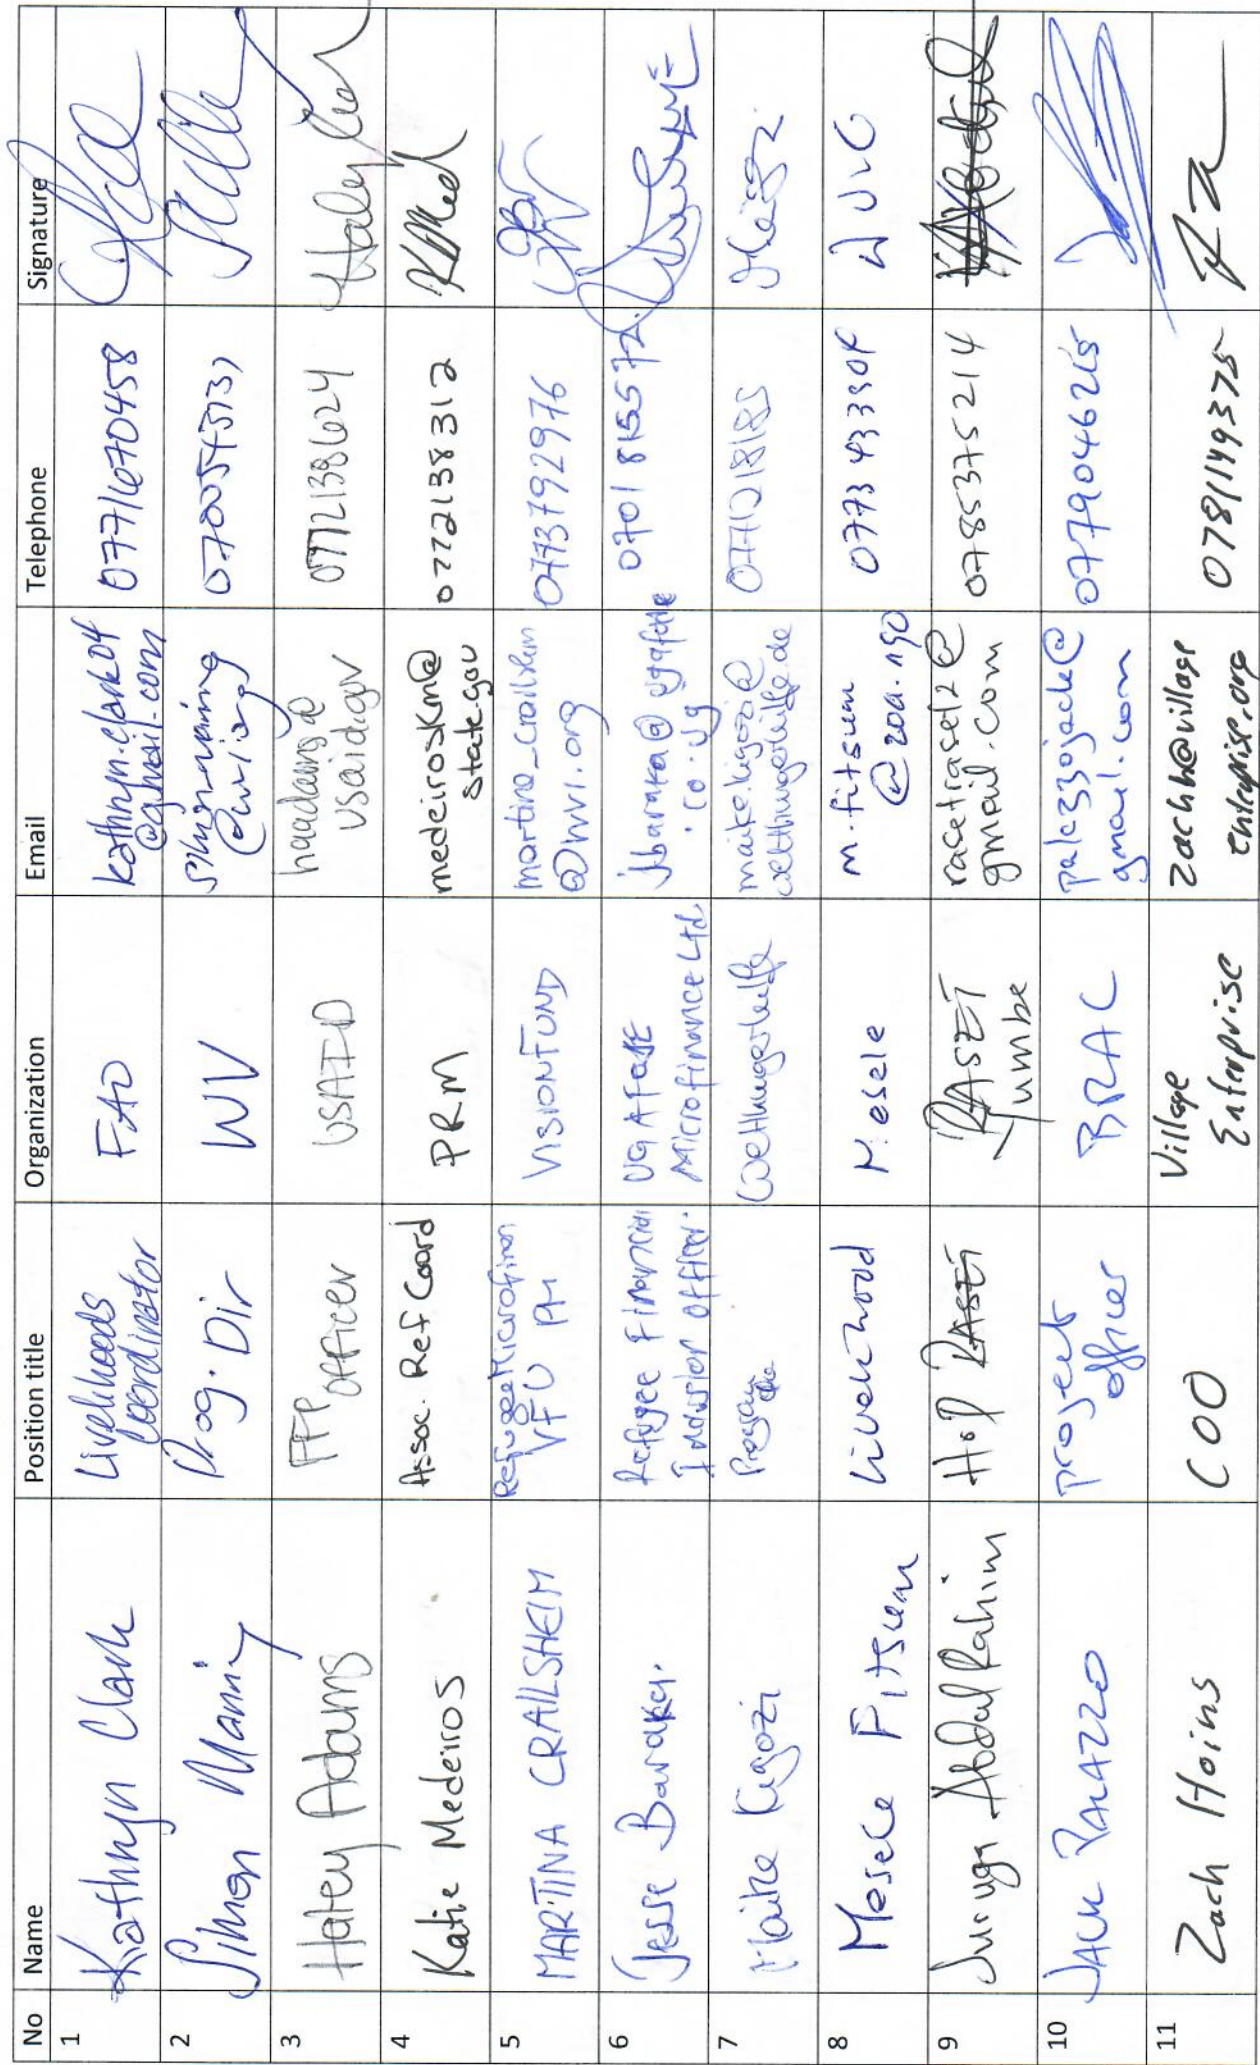 No Name Position title Organization Email Telephone Signature
1 Kathryn Clark Livelihoods Coordinator FAO kathryn.clark04@gmail.com 0771670458
2 Simon Mannin Prog. Dir WV @wvi.org
3 Haley Adams FFP officer USAID haadams@usaid.gov 0772138624
4 Katie Medeiros Assoc. Ref Coord PRM medeiroskm@state.gov 0772138312
5 MARTINA CRAILSHEIM Refugee Microfinan VFU PM VISIONFUND martina_crailsheim@wvi.org 0773792976
6 Jesse Baraka. Refugee Financial Inclusion officer. UGAFODE Microfinance Ltd jbaraka@ugafode.co.ug 0701815572.
7 Maike Kigozi Program Welthungerhilfe maike.kigozi@welthungerhilfe.de 0771218185
8 Mesele Fitsum Livelihood Mesele m.fitsum@zoa.ngo
9 Abdul Rahim HoP RASET RASET Yumbe racetraset2@gmail.com 0785375214
10 JACK PALAZZO project officer BRAC palazzojack@gmail.com 0779046215
11 Zach Hoins COO Village Enterprise zachh@villageenterprise.org 0781149375